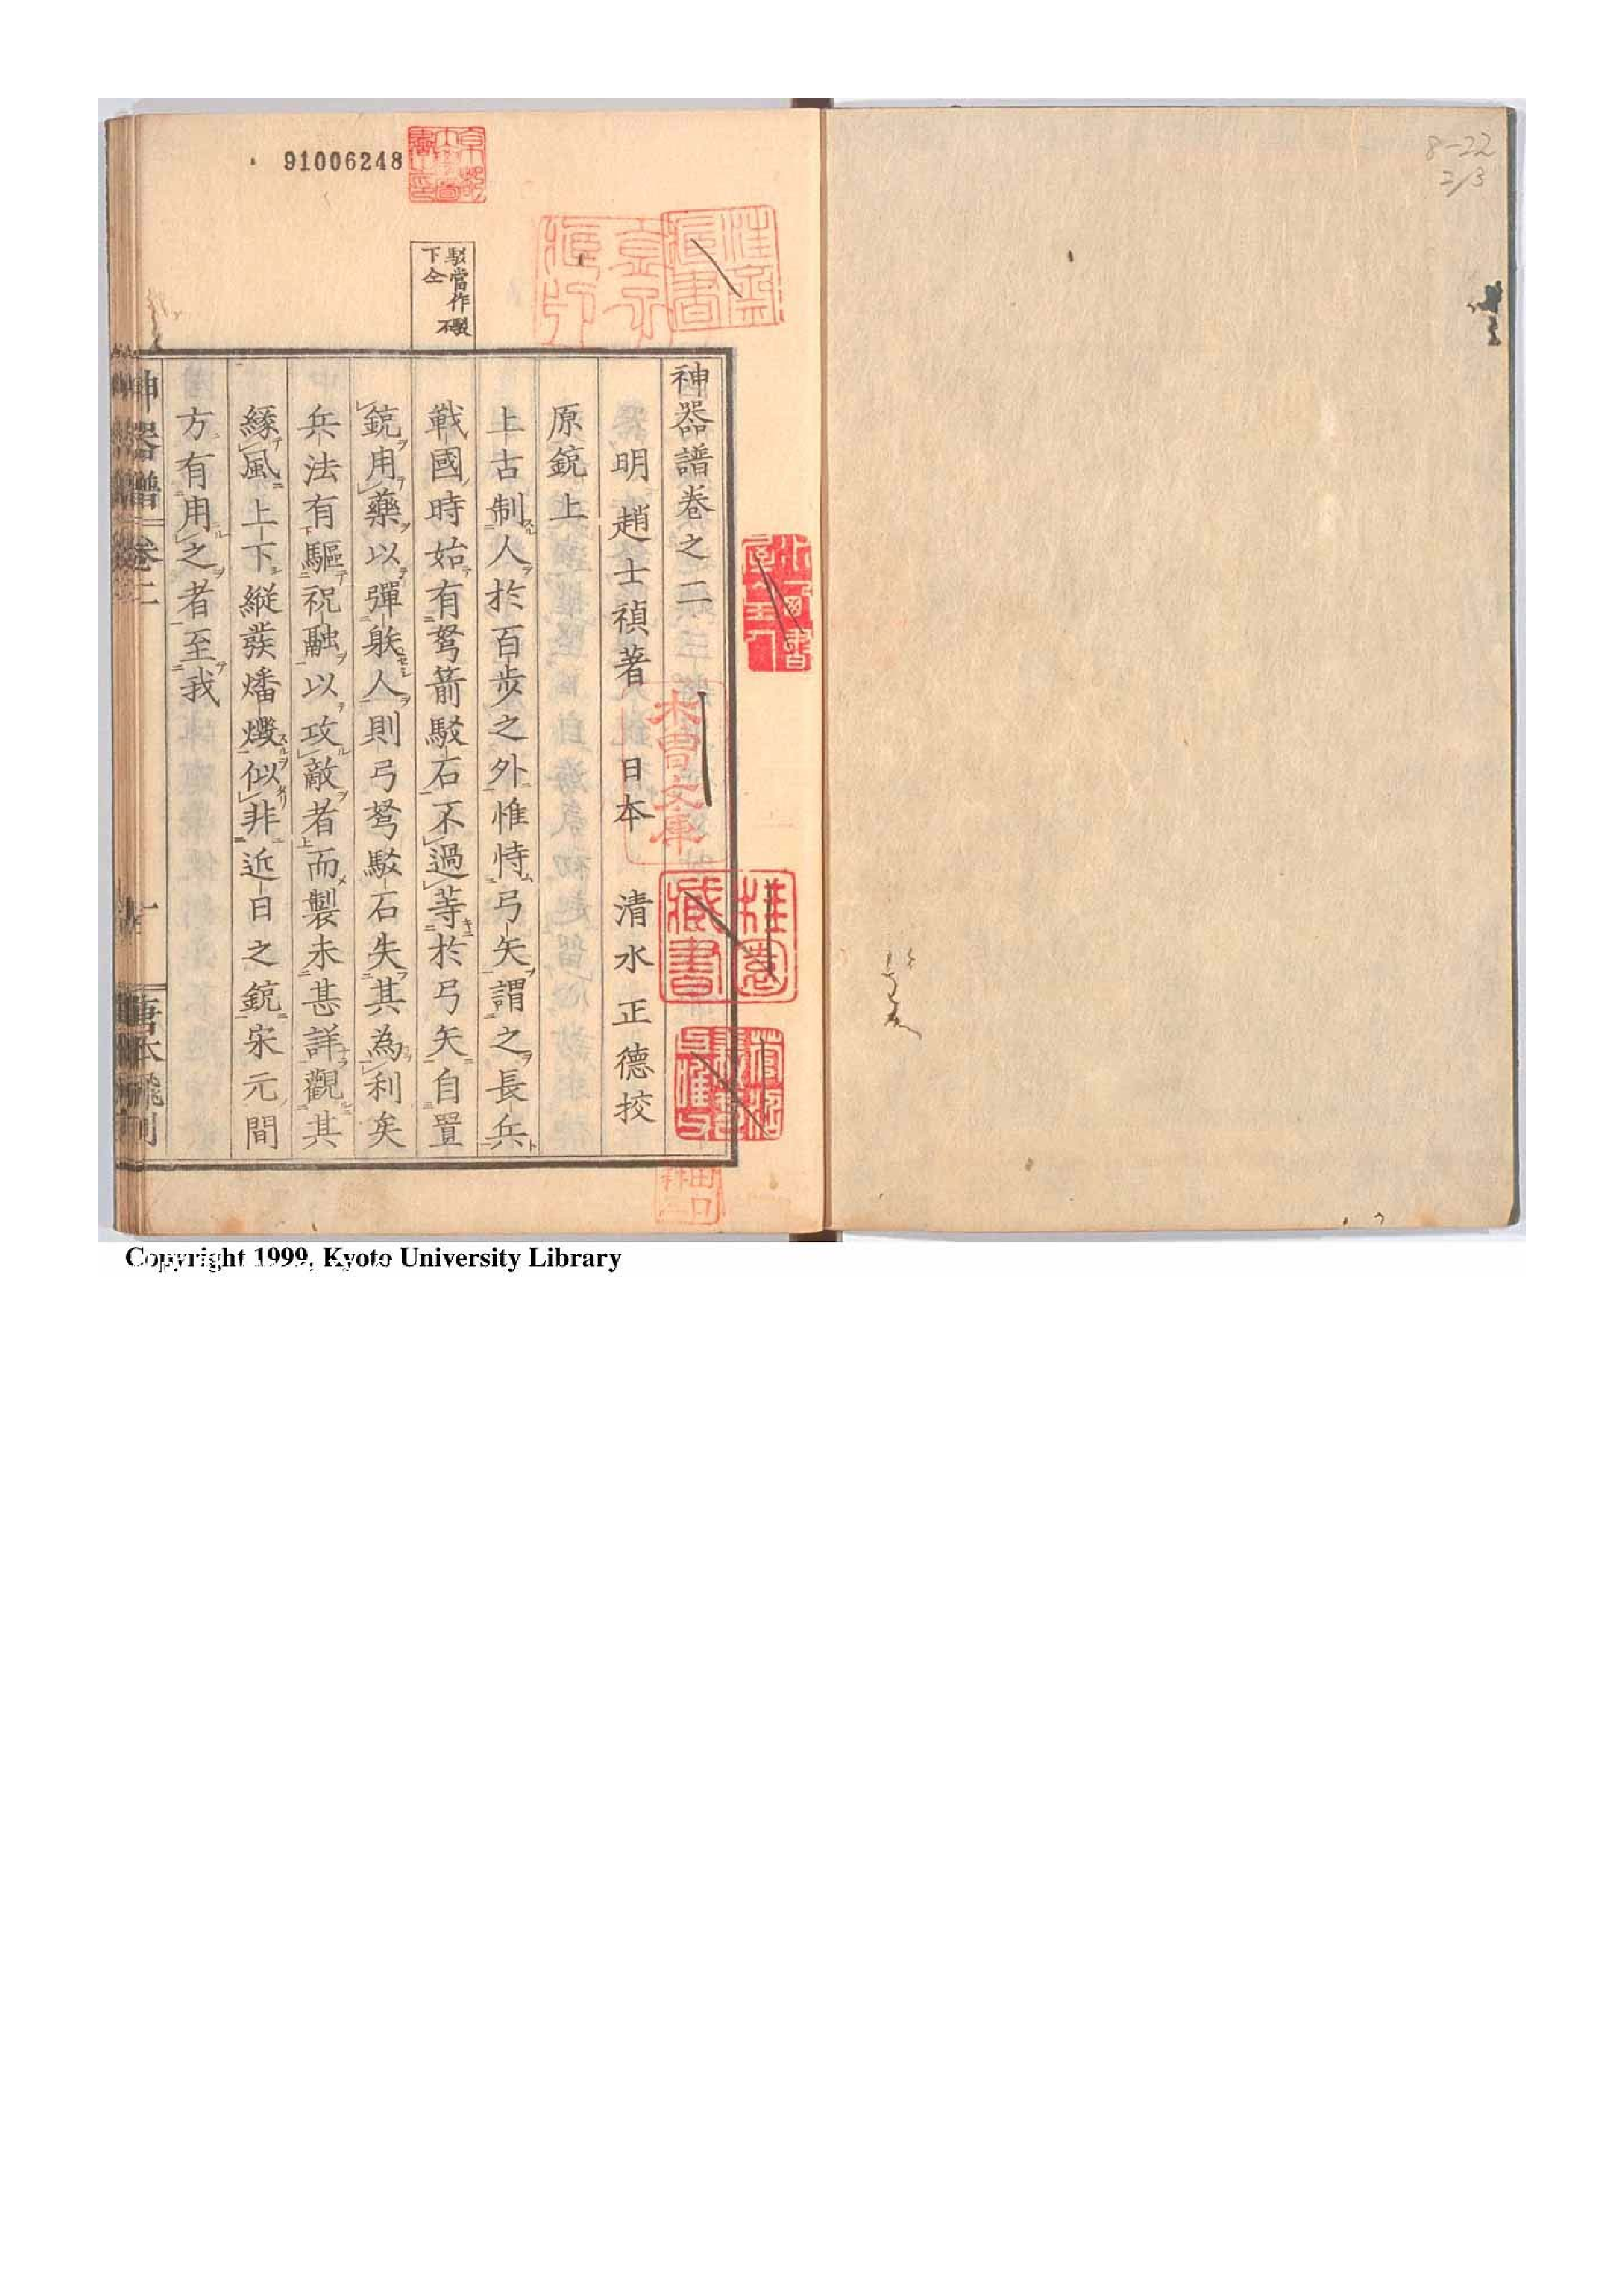 8-22
2/3
91006248
駁當作礟
下仝
神器譜卷之二
明 趙士禎著 日本 清水正德挍
原銃上
上古制人於百步之外惟恃弓矢謂之長兵
戰國時始有弩箭駁石不過等於弓矢自置
銃用藥以彈躲人則弓弩駁石失其為利矣
兵法有驅祝融以攻敵者而製未甚詳觀其
緣風上下縱發燔爇似非近日之銃宋元間
方有用之者至我
神器譜 卷二
一
木曽文庫
桂園
藏書
Copyright 1999, Kyoto University Library